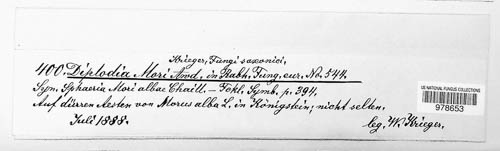 Krieger, Fungi saxonici,
400. Diplodia Mori Awd. in Rabh. Fung. eur. No. 544.
Syn. Sphaeria Mori albae Chaill. — Fckl. Symb. p. 394.
Auf dürren Aesten von Morus alba L. in Königstein; nicht selten.
Juli 1888.
leg. W. Krieger.
US NATIONAL FUNGUS COLLECTIONS
978653